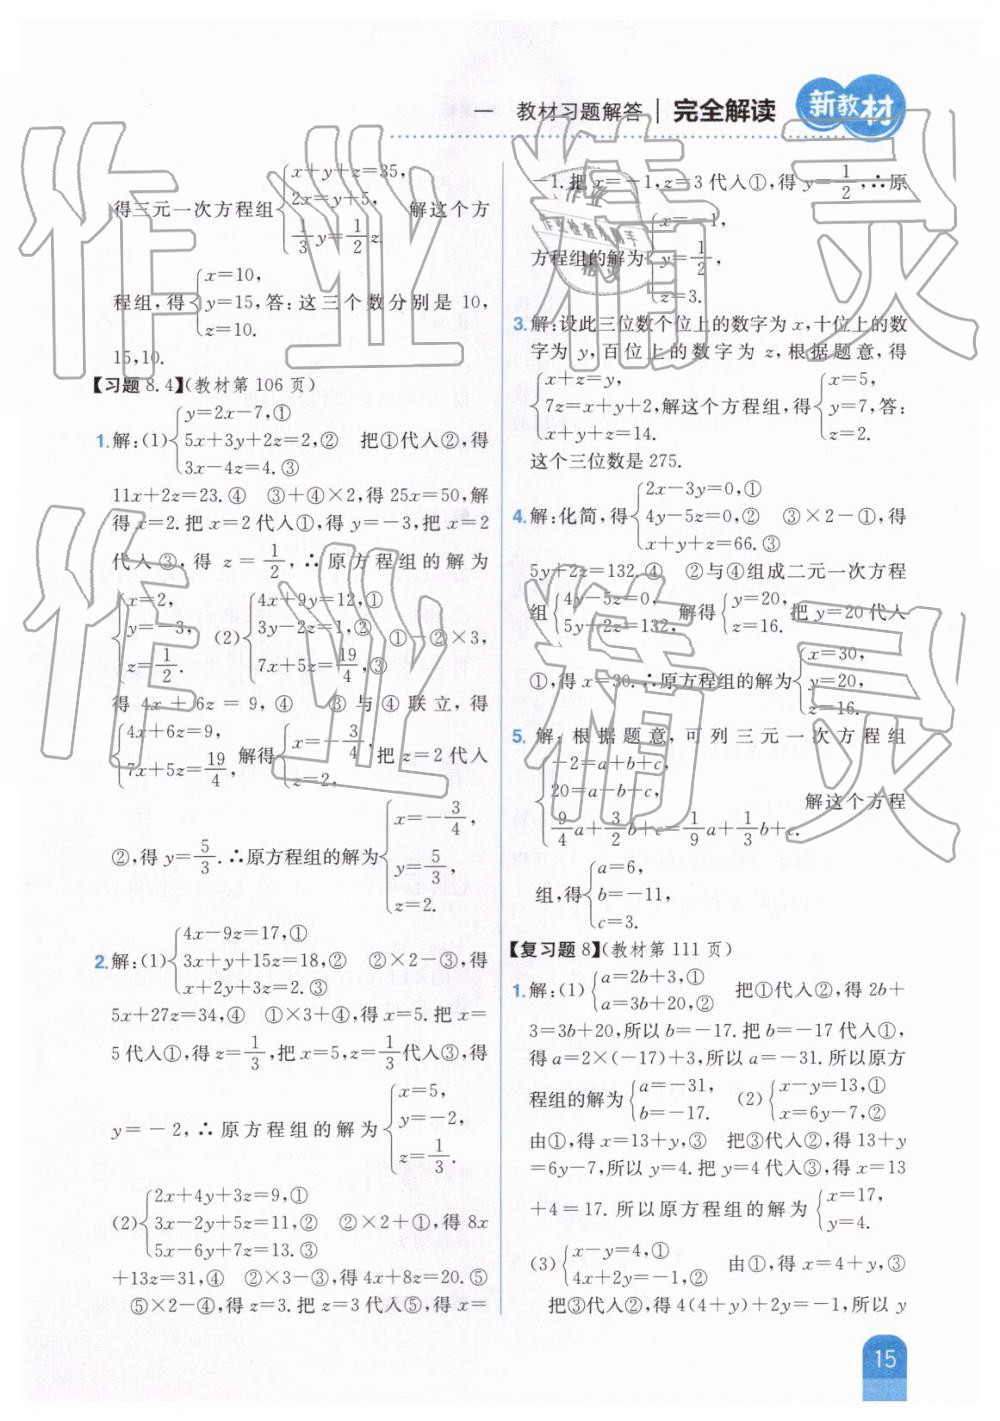 一 教材习题解答 完全解读 新教材
得三元一次方程组{x+y+z=35, 2x=y+5, 1/3 y=1/2 z. 解这个方
程组,得{x=10, y=15, z=10. 答:这三个数分别是 10,
15,10.
【习题 8.4】(教材第 106 页)
1.解:(1){y=2x-7,① 5x+3y+2z=2,② 3x-4z=4.③ 把①代入②,得
11x+2z=23.④ ③+④×2,得 25x=50,解
得 x=2.把 x=2 代入①,得 y=-3,把 x=2
代入③,得 z=1/2,∴原方程组的解为
{x=2, y=-3, z=1/2. (2){4x+9y=12,① 3y-2z=1,② 7x+5z=19/4,③ ①-②×3,
得 4x+6z=9,④ ③与④联立,得
{4x+6z=9, 7x+5z=19/4, 解得{x=-3/4, z=2, 把 z=2 代入
②,得 y=5/3.∴原方程组的解为{x=-3/4, y=5/3, z=2.
2.解:(1){4x-9z=17,① 3x+y+15z=18,② x+2y+3z=2.③ ②×2-③,得
5x+27z=34,④ ①×3+④,得 x=5.把 x=
5代入①,得 z=1/3,把 x=5,z=1/3代入③,得
y=-2,∴原方程组的解为{x=5, y=-2, z=1/3.
(2){2x+4y+3z=9,① 3x-2y+5z=11,② 5x-6y+7z=13.③ ②×2+①,得 8x
+13z=31,④ ②×3-③,得 4x+8z=20.⑤
⑤×2-④,得 z=3.把 z=3 代入⑤,得 x=
-1.把 x=-1,z=3 代入①,得 y=1/2,∴原
方程组的解为{x=-1, y=1/2, z=3.
3.解:设此三位数个位上的数字为 x,十位上的数
字为 y,百位上的数字为 z,根据题意,得
{x+z=y, 7z=x+y+2, x+y+z=14. 解这个方程组,得{x=5, y=7, z=2. 答:
这个三位数是 275.
4.解:化简,得{2x-3y=0,① 4y-5z=0,② x+y+z=66.③ ③×2-①,得
5y+2z=132.④ ②与④组成二元一次方程
组{4y-5z=0, 5y+2z=132, 解得{y=20, z=16. 把 y=20 代入
①,得 x=30.∴原方程组的解为{x=30, y=20, z=16.
5.解:根据题意,可列三元一次方程组
{-2=a+b+c, 20=a-b+c, 9/4 a+3/2 b+c=1/9 a+1/3 b+c. 解这个方程
组,得{a=6, b=-11, c=3.
【复习题 8】(教材第 111 页)
1.解:(1){a=2b+3,① a=3b+20,② 把①代入②,得 2b+
3=3b+20,所以 b=-17.把 b=-17 代入①,
得 a=2×(-17)+3,所以 a=-31.所以原方
程组的解为{a=-31, b=-17. (2){x-y=13,① x=6y-7,②
由①,得 x=13+y,③ 把③代入②,得 13+y
=6y-7,所以 y=4.把 y=4 代入③,得 x=13
+4=17.所以原方程组的解为{x=17, y=4.
(3){x-y=4,① 4x+2y=-1,② 由①,得 x=4+y,③
把③代入②,得 4(4+y)+2y=-1,所以 y
15
作业精灵
作业精灵